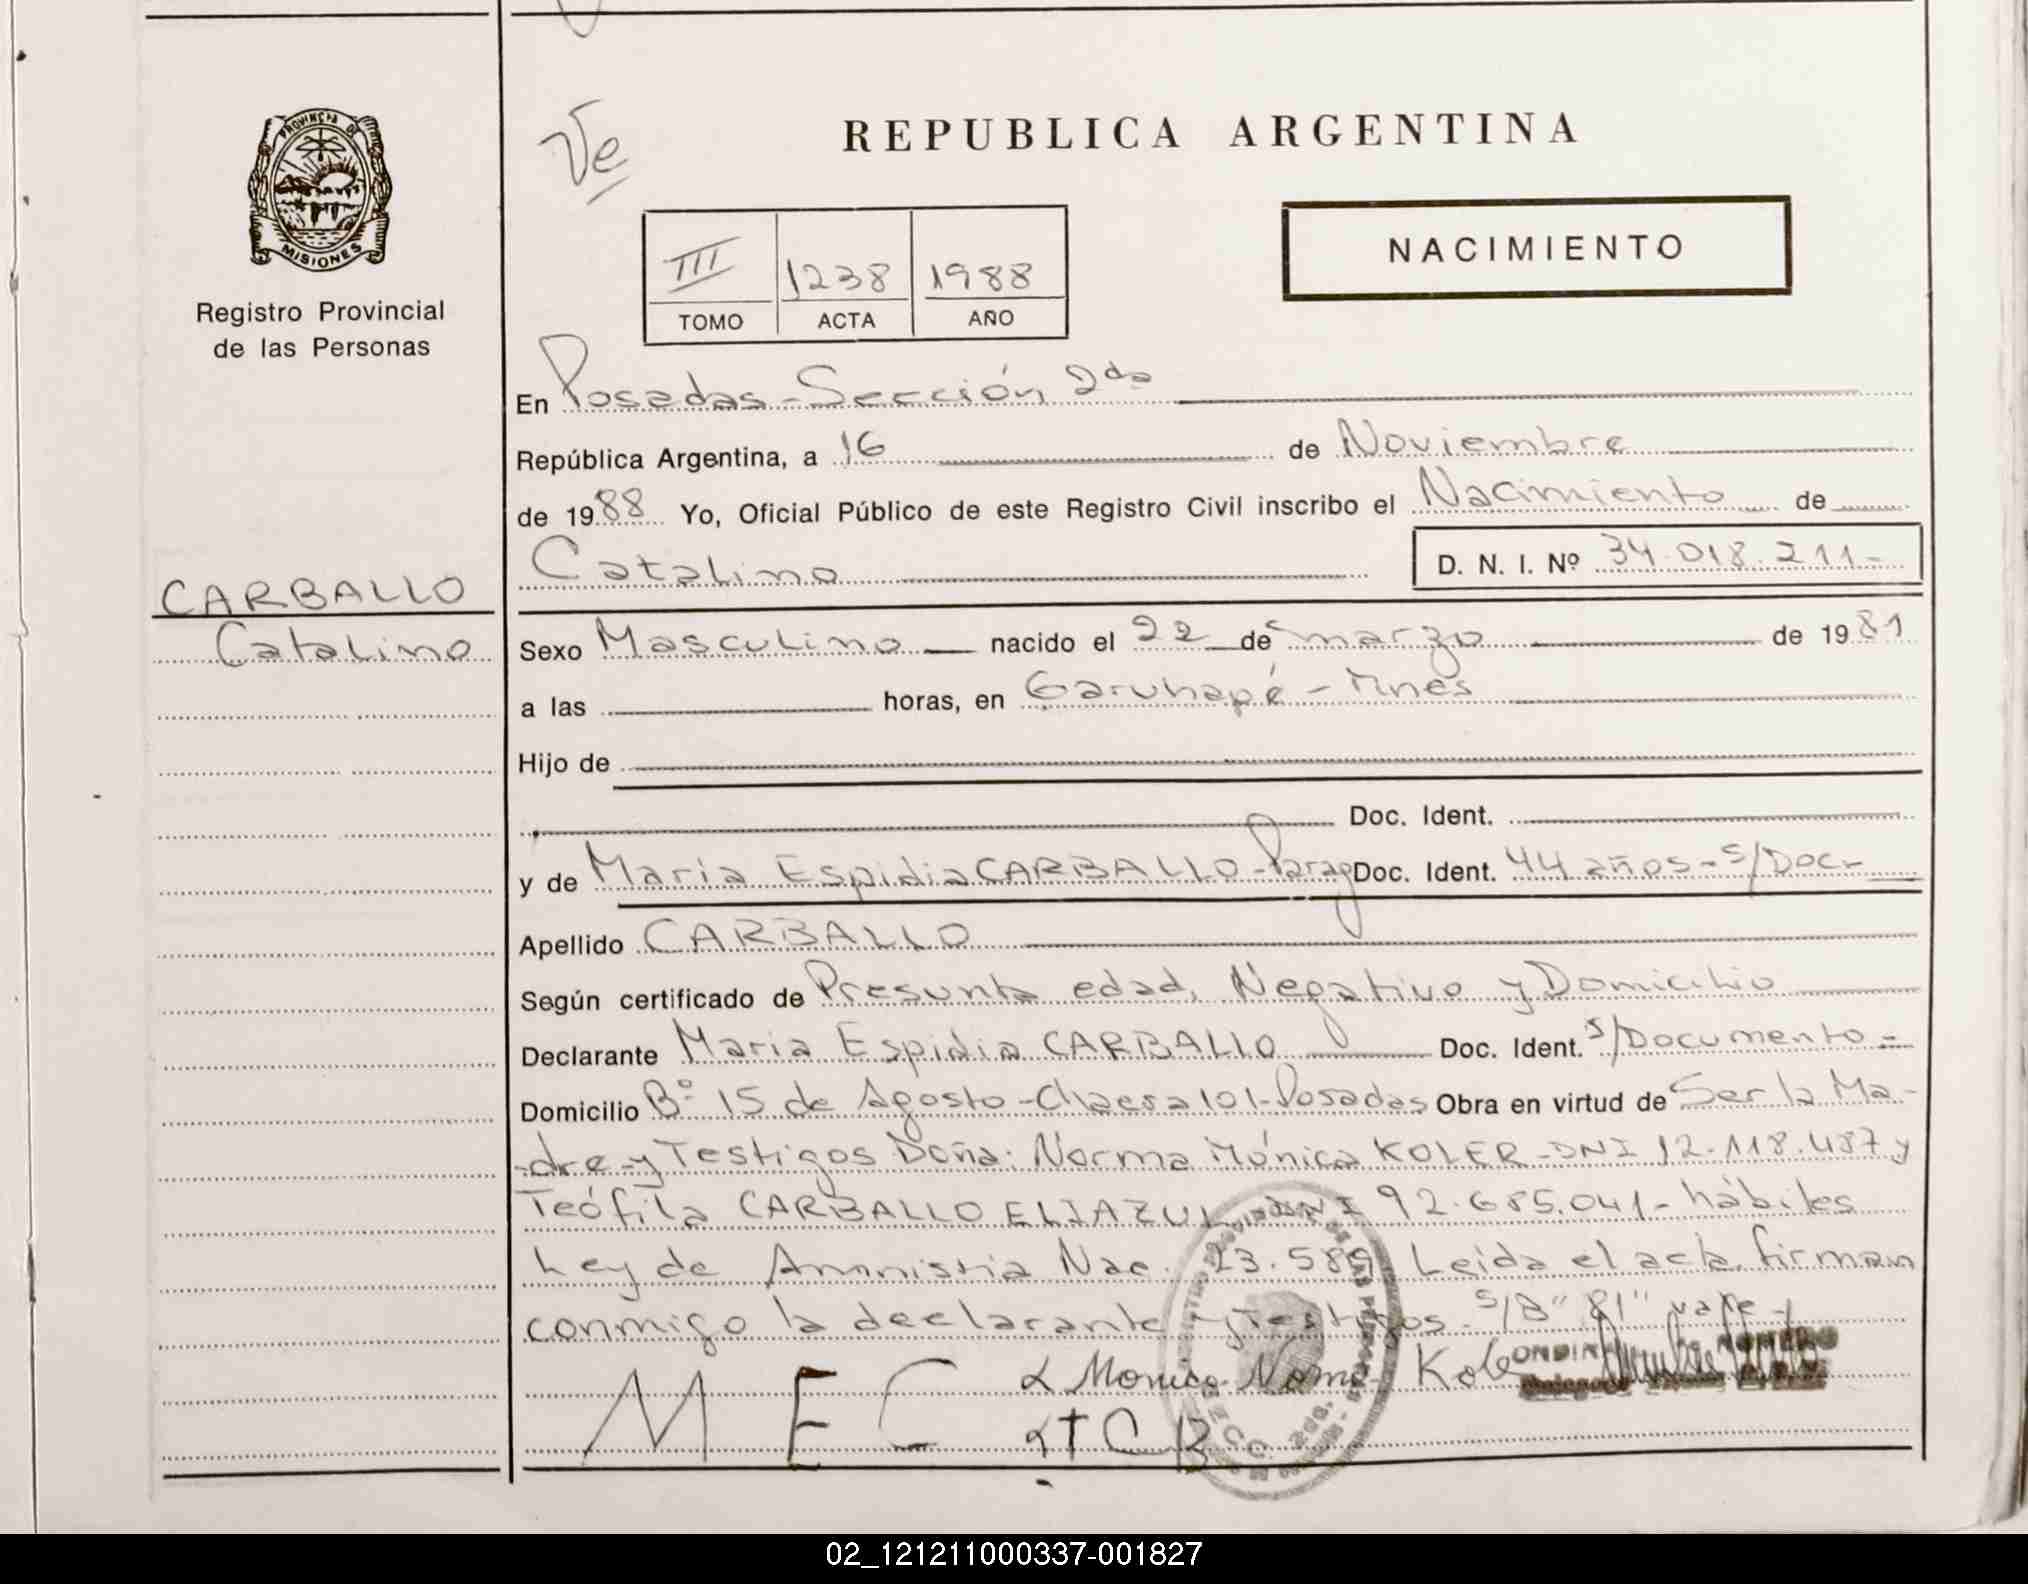 Ve
REPUBLICA ARGENTINA
PROVINCIA DE
MISIONES
Registro Provincial
de las Personas
NACIMIENTO
III 1238 1988
TOMO ACTA AÑO
En Posadas - Sección 2da
República Argentina, a 16 de Noviembre
de 1988 Yo, Oficial Público de este Registro Civil inscribo el Nacimiento de
Catalino D. N. I. Nº 34.018.211-
CARBALLO
Catalino
Sexo Masculino nacido el 22 de marzo de 1981
a las horas, en Garuhapé - Mnes
Hijo de
Doc. Ident.
y de María Espidia CARBALLO - Parag Doc. Ident. 44 años - s/Doc-
Apellido CARBALLO
Según certificado de Presunta edad, Negativo y Domicilio
Declarante María Espidia CARBALLO Doc. Ident. s/Documento -
Domicilio Bº 15 de Agosto - Chacra 101 - Posadas Obra en virtud de Ser la Ma-
-dre y Testigos Doña: Norma Mónica KOLER - DNI 12.118.487 y
Teófila CARBALLO ELIAZUL DNI 92.685.041 - hábiles
Ley de Amnistia Nac. 23.585 Leida el acta, firman
conmigo la declarante y Testigos - S/B "81" vale -
M E C Monica Norma Kole ROMERO
T C
02_121211000337-001827